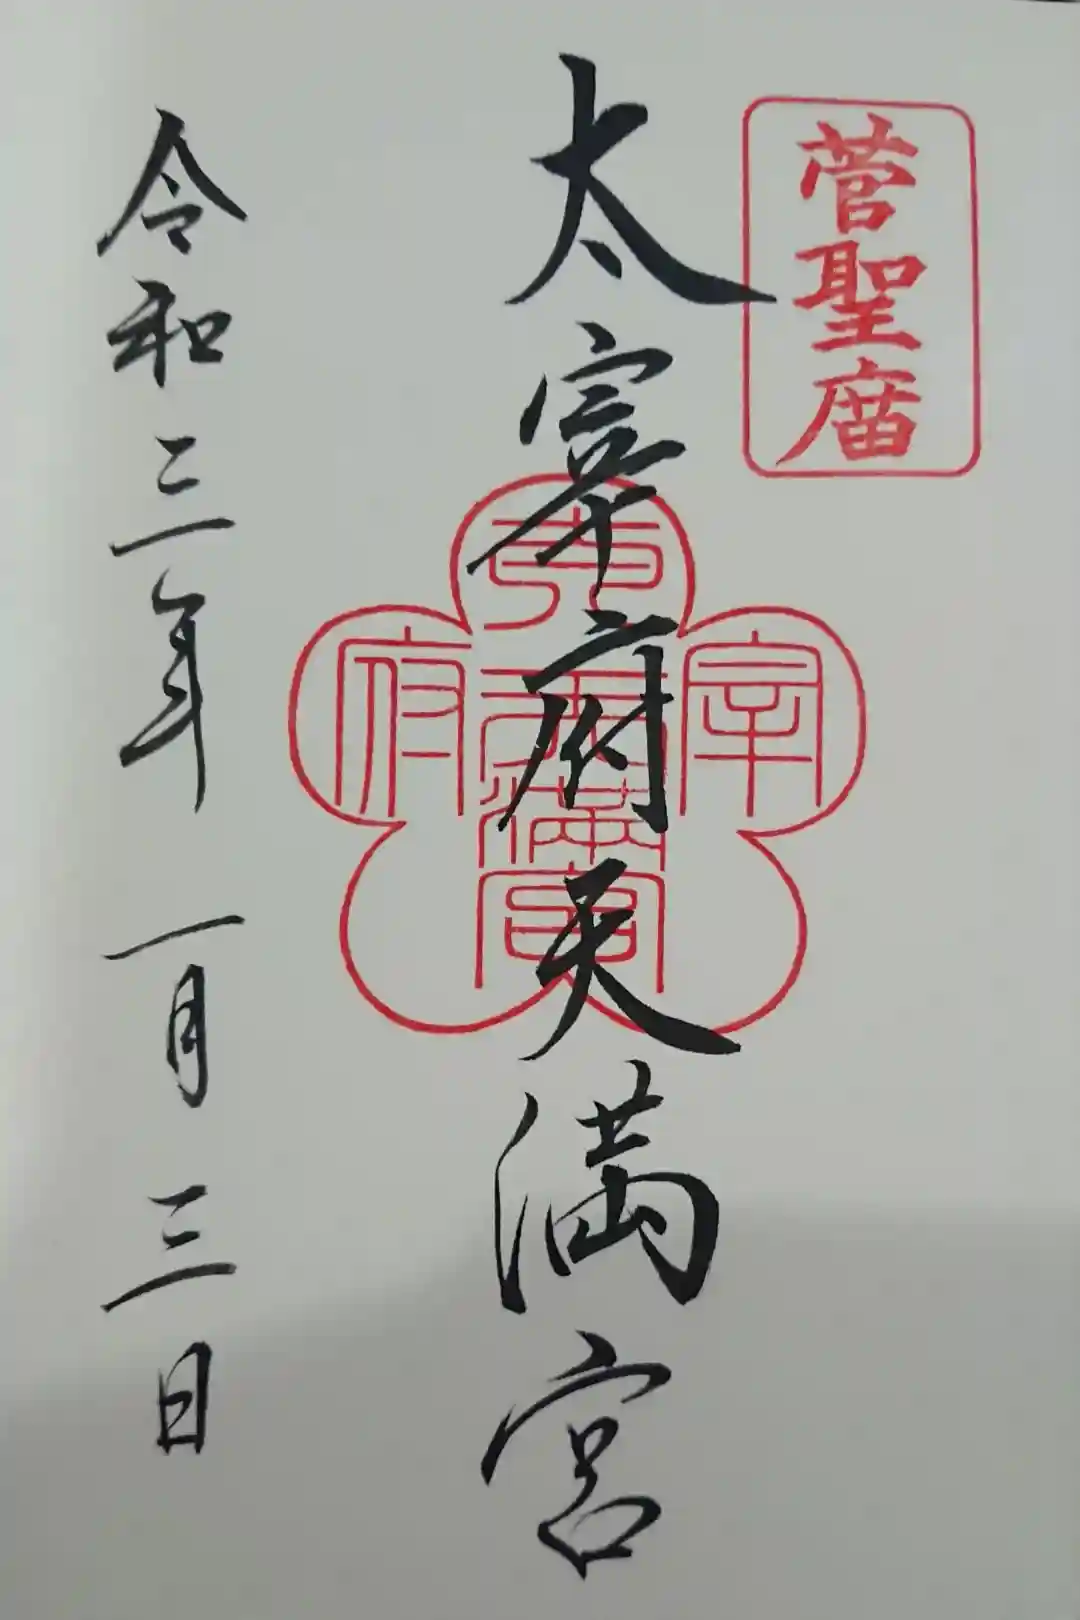 菅聖庿
太宰府天満宮
太宰府天満宮
令和三年一月三日